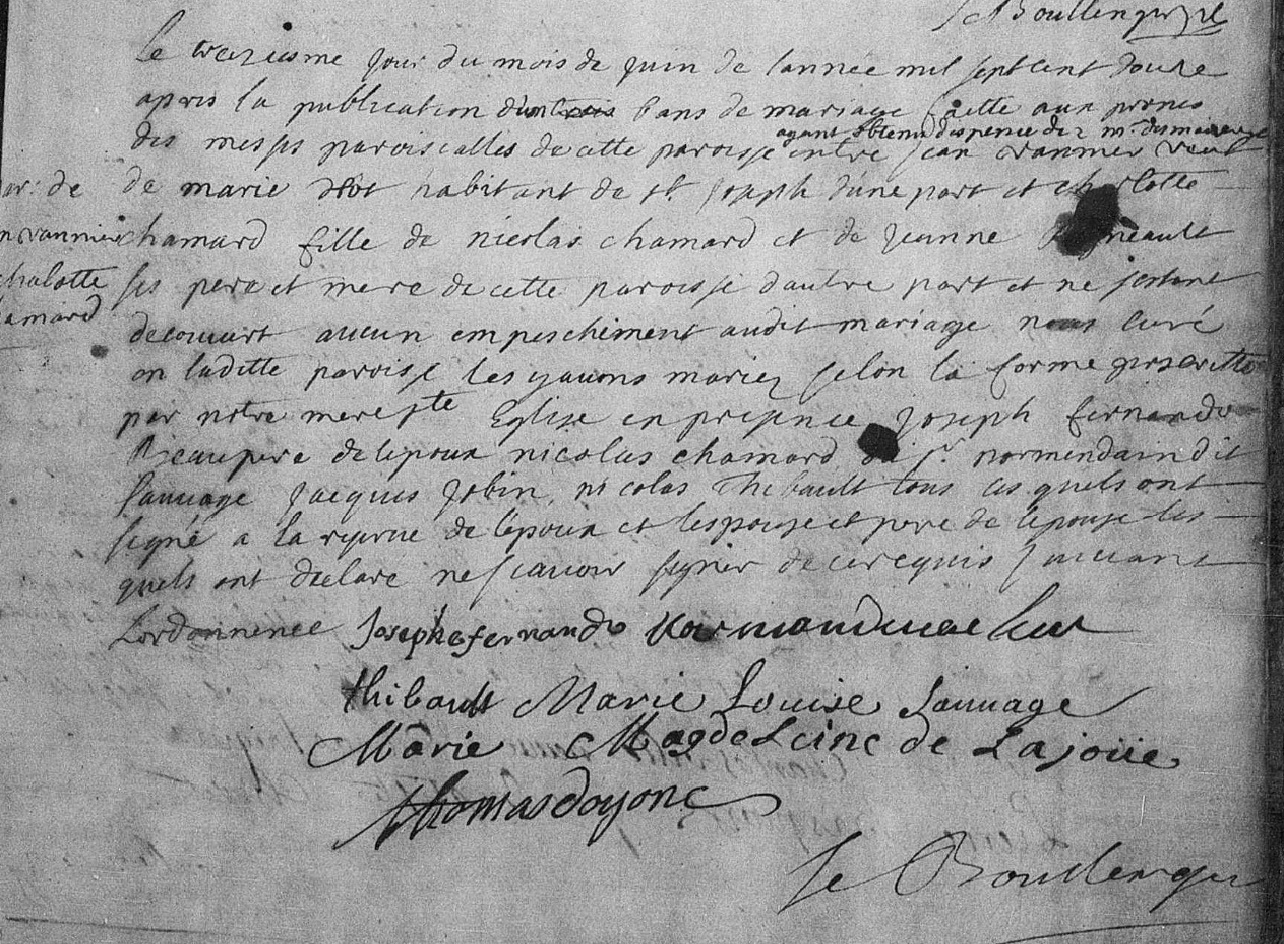 Le Boullenger ptre
le treziesme jour du mois de juin de lannee mil sept cent douze
apres la publication d'un bans de mariage faitte aux prones
ayant obtenu dispence de 2 mr.
des messes paroissialles de cette paroisse entre jean vannier veuf
mar: de
de marie habitant de st. joseph dune part et charlotte
n vannier
chamard fille de nicolas chamard et de jeanne
chalotte
ses pere et mere de cette paroisse dautre part et ne sestant
amard
decouvert aucun empeschement audit mariage nous curé
en laditte paroisse les yavons mariez selon la forme prescritte
par notre mere ste Eglise en presence joseph fernando
Beaupere de lepoux nicolas chamard normendain dit
sauvage jacques jobin, nicolas Thibault tous lesquels ont
signé a la reserve de lépoux et lespouse et pere de lépouse les
quels ont declare ne scavoir signer de ce requis suivant
Lordonnence Joseph fernando
thibault Marie Louise Sauvage
Marie Magdeleine de Lajoüe
thomas doyon
Le Boullenger